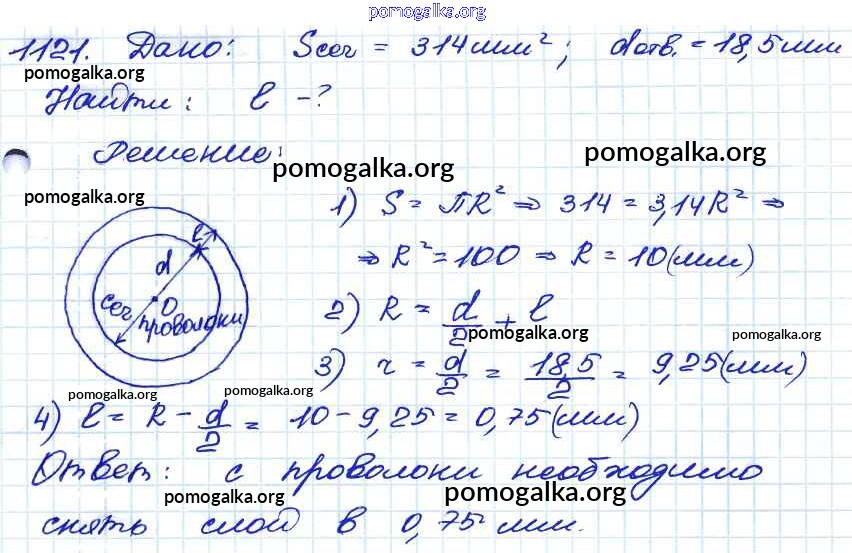 pomogalka.org
1121. Дано: Sсеч = 314 мм²; dотв. = 18,5 мм
pomogalka.org pomogalka.org
Найти: l - ?
Решение:
pomogalka.org pomogalka.org
pomogalka.org
1) S = πR² ⇒ 314 = 3,14R² ⇒
⇒ R² = 100 ⇒ R = 10 (мм)
l
d
O
сеч проволоки
2) R = d/2 + l
pomogalka.org pomogalka.org
3) r = d/2 = 18,5/2 = 9,25 (мм)
pomogalka.org pomogalka.org
4) l = R - d/2 = 10 - 9,25 = 0,75 (мм)
Ответ: с проволоки необходимо
pomogalka.org pomogalka.org
снять слой в 0,75 мм.